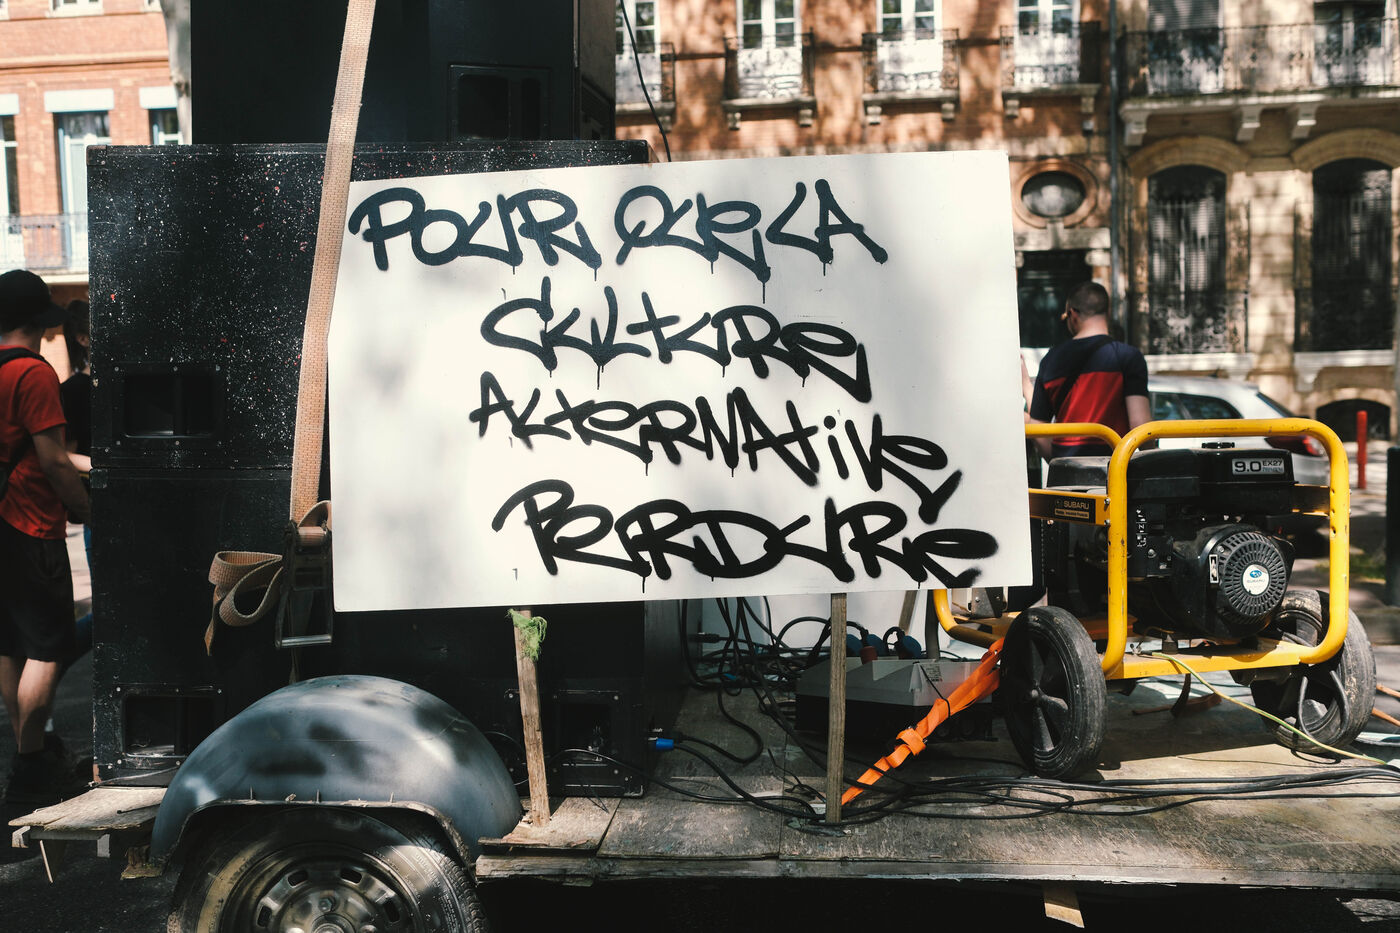 POUR QUE LA
CULTURE
ALTERNATIVE
PERDURE
9.0 EX27
SUBARU
SUBARU